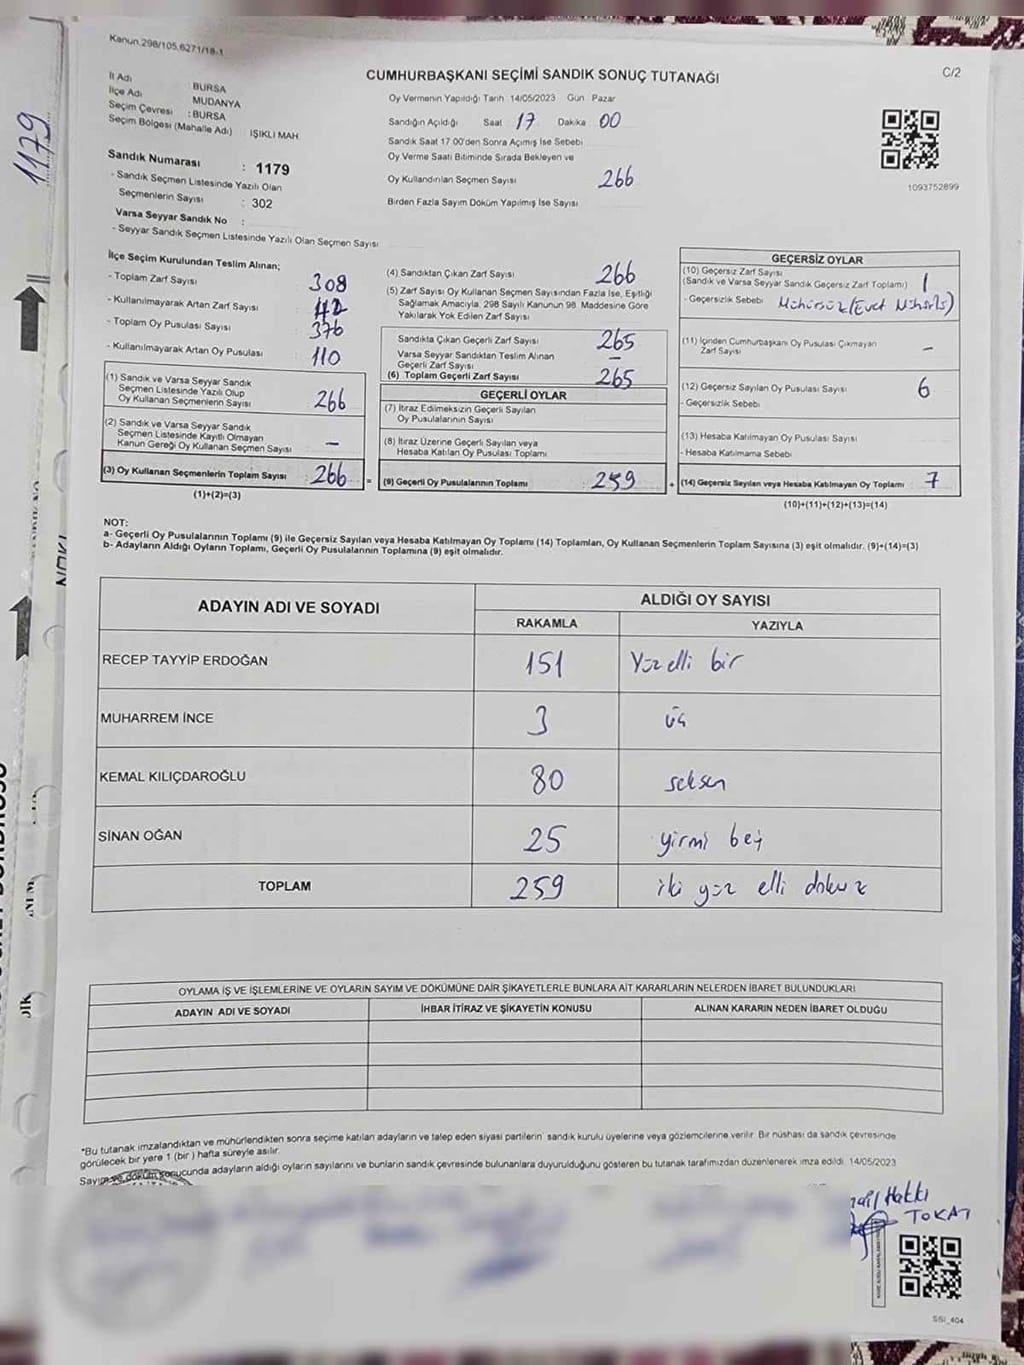 Kanun.298/105,6271/18-1
C/2
CUMHURBAŞKANI SEÇİMİ SANDIK SONUÇ TUTANAĞI
İl Adı BURSA
İlçe Adı MUDANYA
Seçim Çevresi : BURSA
Seçim Bölgesi (Mahalle Adı) IŞIKLI MAH
Sandık Numarası : 1179
- Sandık Seçmen Listesinde Yazılı Olan
Seçmenlerin Sayısı : 302
Varsa Seyyar Sandık No :
- Seyyar Sandık Seçmen Listesinde Yazılı Olan Seçmen Sayısı
1179
Oy Vermenin Yapıldığı Tarih 14/05/2023 Gün Pazar
Sandığın Açıldığı Saat 17 Dakika 00
Sandık Saat 17.00'den Sonra Açımış İse Sebebi
Oy Verme Saati Bitiminde Sırada Bekleyen ve
Oy Kullandırılan Seçmen Sayısı 266
Birden Fazla Sayım Döküm Yapılmış İse Sayısı
1093752899
İlçe Seçim Kurulundan Teslim Alınan;
- Toplam Zarf Sayısı 308
- Kullanılmayarak Artan Zarf Sayısı 42
- Toplam Oy Pusulası Sayısı 376
- Kullanılmayarak Artan Oy Pusulası 110
(1) Sandık ve Varsa Seyyar Sandık
Seçmen Listesinde Yazılı Olup
Oy Kullanan Seçmenlerin Sayısı 266
(2) Sandık ve Varsa Seyyar Sandık
Seçmen Listesinde Kayıtlı Olmayan
Kanun Gereği Oy Kullanan Seçmen Sayısı –
(3) Oy Kullanan Seçmenlerin Toplam Sayısı 266 =
(1)+(2)=(3)
(4) Sandıktan Çıkan Zarf Sayısı 266
(5) Zarf Sayısı Oy Kullanan Seçmen Sayısından Fazla İse, Eşitliği
Sağlamak Amacıyla, 298 Sayılı Kanunun 98. Maddesine Göre
Yakılarak Yok Edilen Zarf Sayısı
Sandıkta Çıkan Geçerli Zarf Sayısı 265
Varsa Seyyar Sandıktan Teslim Alınan
Geçerli Zarf Sayısı –
(6) Toplam Geçerli Zarf Sayısı 265
GEÇERLİ OYLAR
(7) İtiraz Edilmeksizin Geçerli Sayılan
Oy Pusulalarının Sayısı
(8) İtiraz Üzerine Geçerli Sayılan veya
Hesaba Katılan Oy Pusulası Toplamı
(9) Geçerli Oy Pusulalarının Toplamı 259 +
GEÇERSİZ OYLAR
(10) Geçersiz Zarf Sayısı 1
(Sandık ve Varsa Seyyar Sandık Geçersiz Zarf Toplamı)
- Geçersizlik Sebebi Mühürsüz
(11) İçinden Cumhurbaşkanı Oy Pusulası Çıkmayan
Zarf Sayısı –
(12) Geçersiz Sayılan Oy Pusulası Sayısı 6
- Geçersizlik Sebebi
(13) Hesaba Katılmayan Oy Pusulası Sayısı
- Hesaba Katılmama Sebebi
(14) Geçersiz Sayılan veya Hesaba Katılmayan Oy Toplamı 7
(10)+(11)+(12)+(13)=(14)
NOT:
a- Geçerli Oy Pusulasının Toplamı (9) ile Geçersiz Sayılan veya Hesaba Katılmayan Oy Toplamı (14) Toplamları, Oy Kullanan Seçmenlerin Toplam Sayısına (3) eşit olmalıdır. (9)+(14)=(3)
b- Adayların Aldığı Oyların Toplamı, Geçerli Oy Pusulalarının Toplamına (9) eşit olmalıdır.
ADAYIN ADI VE SOYADI ALDIĞI OY SAYISI
RAKAMLA YAZIYLA
RECEP TAYYİP ERDOĞAN 151 Yüz elli bir
MUHARREM İNCE 3 üç
KEMAL KILIÇDAROĞLU 80 seksen
SİNAN OĞAN 25 yirmi beş
TOPLAM 259 iki yüz elli dokuz
OYLAMA İŞ VE İŞLEMLERİNE VE OYLARIN SAYIM VE DÖKÜMÜNE DAİR ŞİKAYETLERLE BUNLARA AİT KARARLARIN NELERDEN İBARET BULUNDUKLARI
ADAYIN ADI VE SOYADI İHBAR İTİRAZ VE ŞİKAYETİN KONUSU ALINAN KARARIN NEDEN İBARET OLDUĞU
*Bu tutanak imzalandıktan ve mühürlendikten sonra seçime katılan adayların ve talep eden siyasi partilerin sandık kurulu üyelerine veya gözlemcilerine verilir. Bir nüshası da sandık çevresinde
görülecek bir yere 1 (bir) hafta süreyle asılır.
Sayım ve döküm sonucunda adayların aldığı oyların sayılarını ve bunların sandık çevresinde bulunanlara duyurulduğunu gösteren bu tutanak tarafımızdan düzenlenerek imza edildi. 14/05/2023
Hakkı
TOKAT
SSI_404